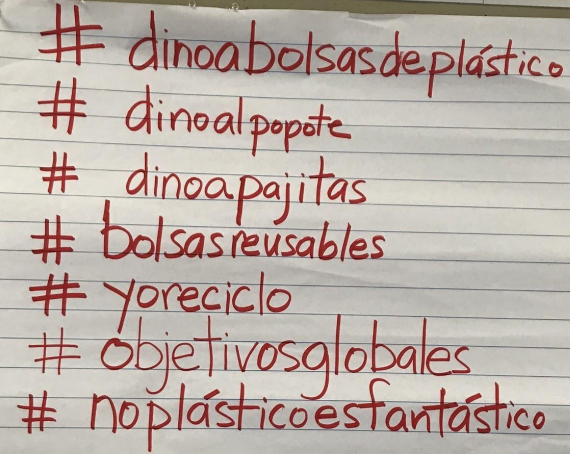 # dinoabolsasdeplástico
# dinoalpopote
# dinoapajitas
# bolsasreusables
# yoreciclo
# objetivosglobales
# noplásticoesfantástico